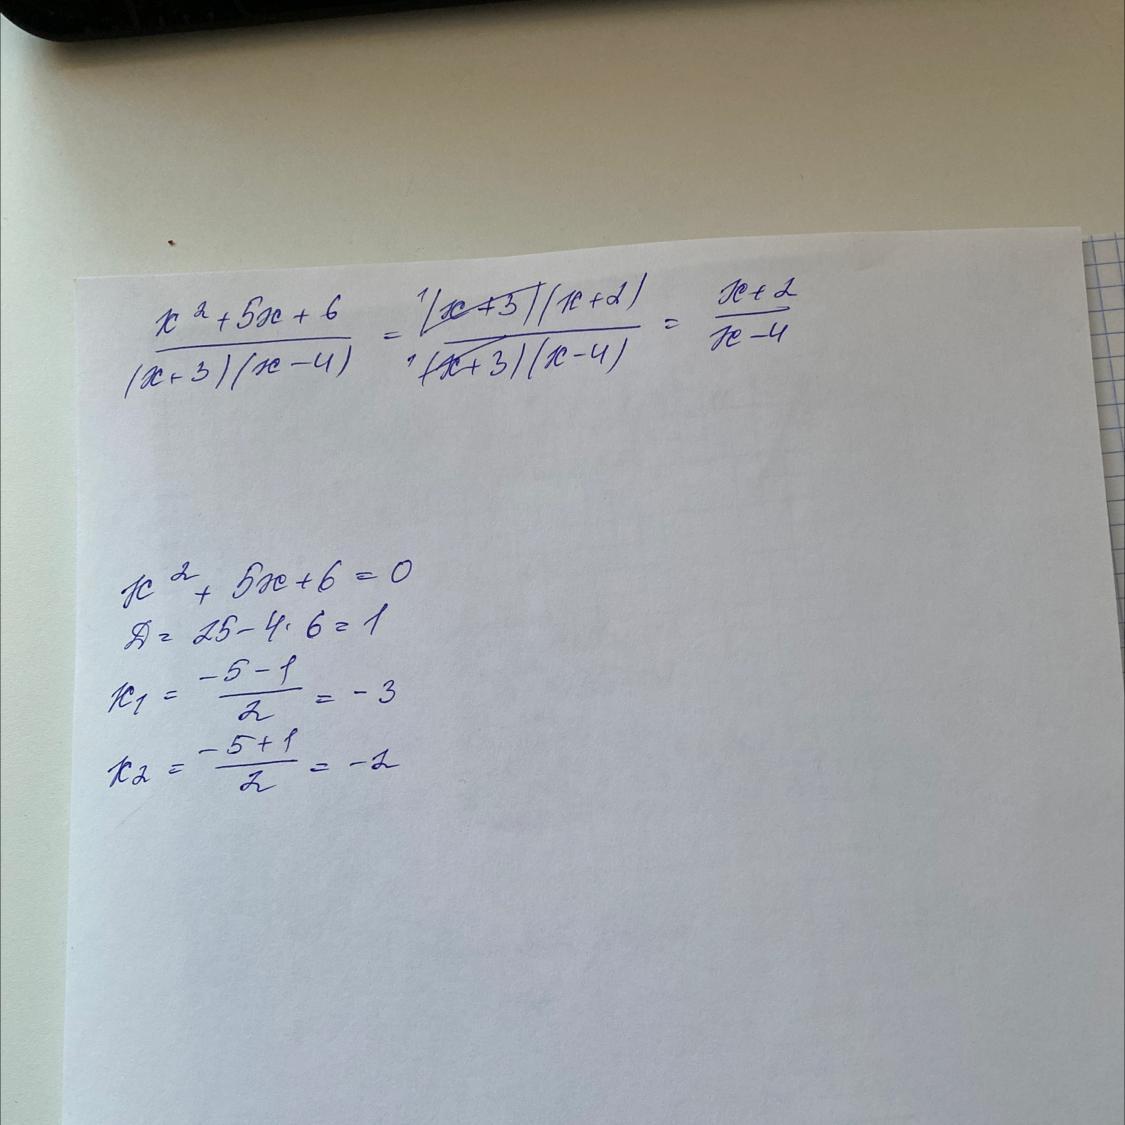 (x² + 5x + 6)/((x+3)(x-4)) = ((x+3)(x+2))/((x+3)(x-4)) = (x+2)/(x-4)
x² + 5x + 6 = 0
Д = 25 - 4 · 6 = 1
x₁ = (-5-1)/2 = -3
x₂ = (-5+1)/2 = -2